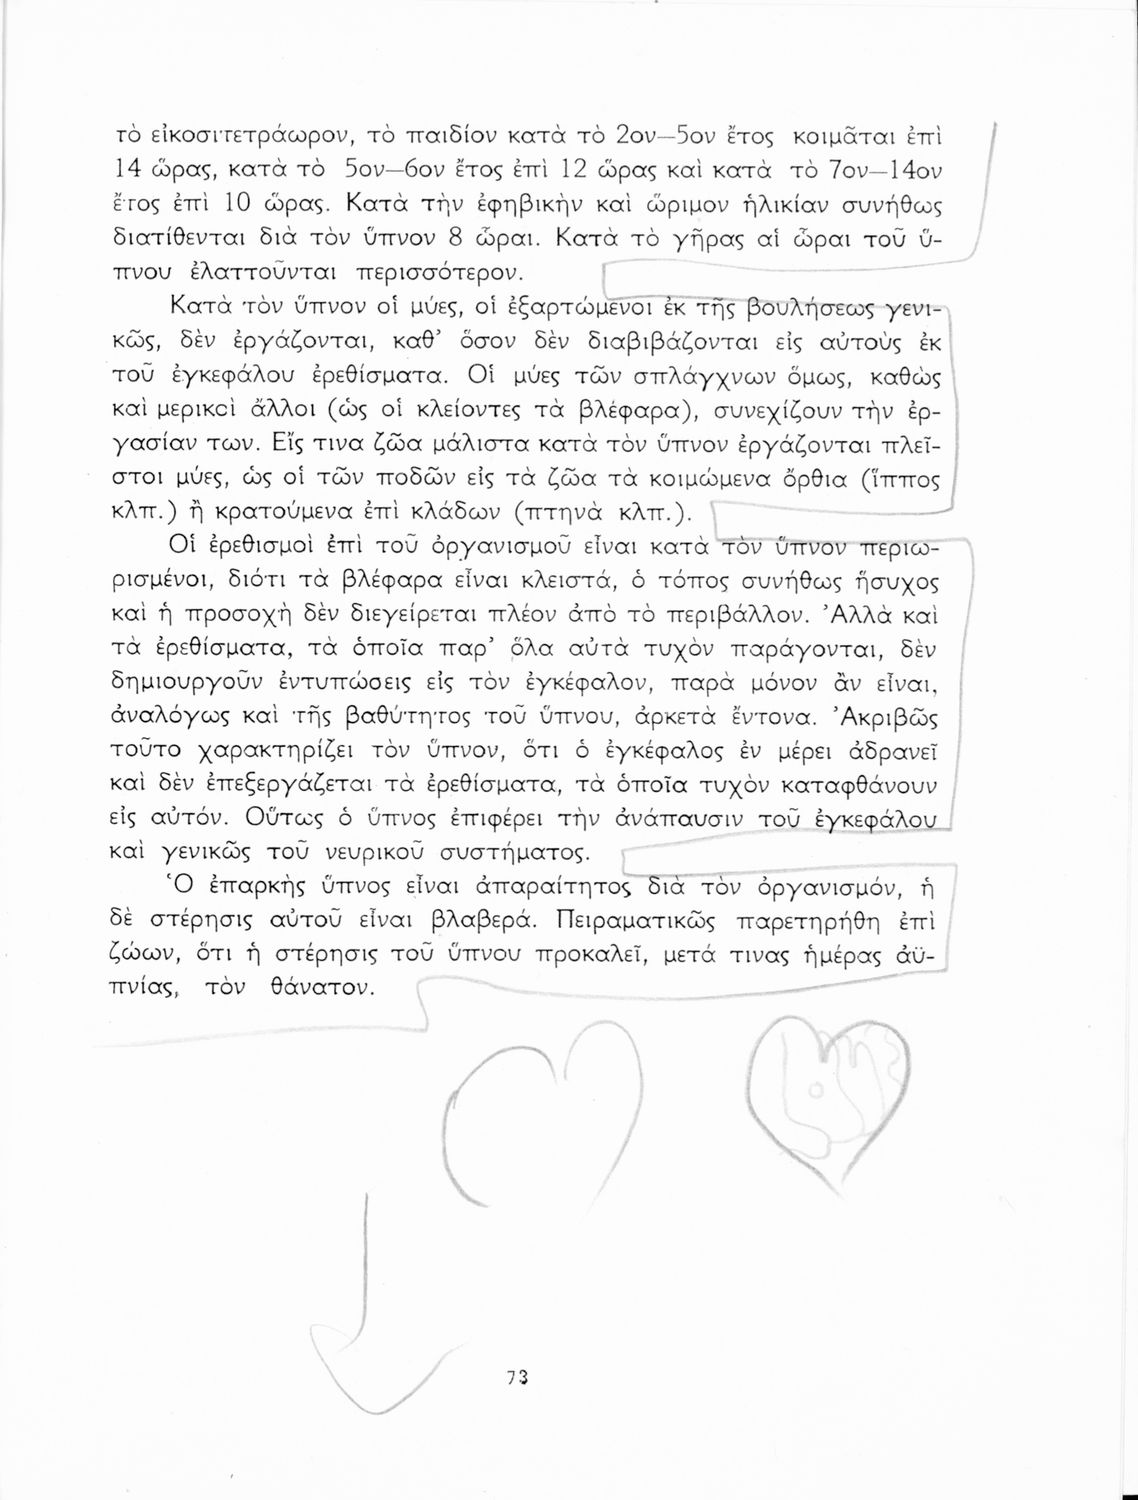 τὸ εἰκοσιτετράωρον, τὸ παιδίον κατὰ τὸ 2ον—5ον ἔτος κοιμᾶται ἐπὶ
14 ὥρας, κατὰ τὸ 5ον—6ον ἔτος ἐπὶ 12 ὥρας καὶ κατὰ τὸ 7ον—14ον
ἔτος ἐπὶ 10 ὥρας. Κατὰ τὴν ἐφηβικὴν καὶ ὥριμον ἡλικίαν συνήθως
διατίθενται διὰ τὸν ὕπνον 8 ὧραι. Κατὰ τὸ γῆρας αἱ ὧραι τοῦ ὕ-
πνου ἐλαττοῦνται περισσότερον.
Κατὰ τὸν ὕπνον οἱ μύες, οἱ ἐξαρτώμενοι ἐκ τῆς βουλήσεως γενι-
κῶς, δὲν ἐργάζονται, καθ’ ὅσον δὲν διαβιβάζονται εἰς αὐτοὺς ἐκ
τοῦ ἐγκεφάλου ἐρεθίσματα. Οἱ μύες τῶν σπλάγχνων ὅμως, καθὼς
καὶ μερικοὶ ἄλλοι (ὡς οἱ κλείοντες τὰ βλέφαρα), συνεχίζουν τὴν ἐρ-
γασίαν των. Εἴς τινα ζῶα μάλιστα κατὰ τὸν ὕπνον ἐργάζονται πλεῖ-
στοι μύες, ὡς οἱ τῶν ποδῶν εἰς τὰ ζῶα τὰ κοιμώμενα ὄρθια (ἵππος
κλπ.) ἢ κρατούμενα ἐπὶ κλάδων (πτηνὰ κλπ.).
Οἱ ἐρεθισμοὶ ἐπὶ τοῦ ὀργανισμοῦ εἶναι κατὰ τὸν ὕπνον περιω-
ρισμένοι, διότι τὰ βλέφαρα εἶναι κλειστά, ὁ τόπος συνήθως ἥσυχος
καὶ ἡ προσοχὴ δὲν διεγείρεται πλέον ἀπὸ τὸ περιβάλλον. Ἀλλὰ καὶ
τὰ ἐρεθίσματα, τὰ ὁποῖα παρ’ ὅλα αὐτὰ τυχὸν παράγονται, δὲν
δημιουργοῦν ἐντυπώσεις εἰς τὸν ἐγκέφαλον, παρὰ μόνον ἂν εἶναι,
ἀναλόγως καὶ τῆς βαθύτητος τοῦ ὕπνου, ἀρκετὰ ἔντονα. Ἀκριβῶς
τοῦτο χαρακτηρίζει τὸν ὕπνον, ὅτι ὁ ἐγκέφαλος ἐν μέρει ἀδρανεῖ
καὶ δὲν ἐπεξεργάζεται τὰ ἐρεθίσματα, τὰ ὁποῖα τυχὸν καταφθάνουν
εἰς αὐτόν. Οὕτως ὁ ὕπνος ἐπιφέρει τὴν ἀνάπαυσιν τοῦ ἐγκεφάλου
καὶ γενικῶς τοῦ νευρικοῦ συστήματος.
Ὁ ἐπαρκὴς ὕπνος εἶναι ἀπαραίτητος διὰ τὸν ὀργανισμόν, ἡ
δὲ στέρησις αὐτοῦ εἶναι βλαβερά. Πειραματικῶς παρετηρήθη ἐπὶ
ζώων, ὅτι ἡ στέρησις τοῦ ὕπνου προκαλεῖ, μετά τινας ἡμέρας ἀϋ-
πνίας, τὸν θάνατον.
73